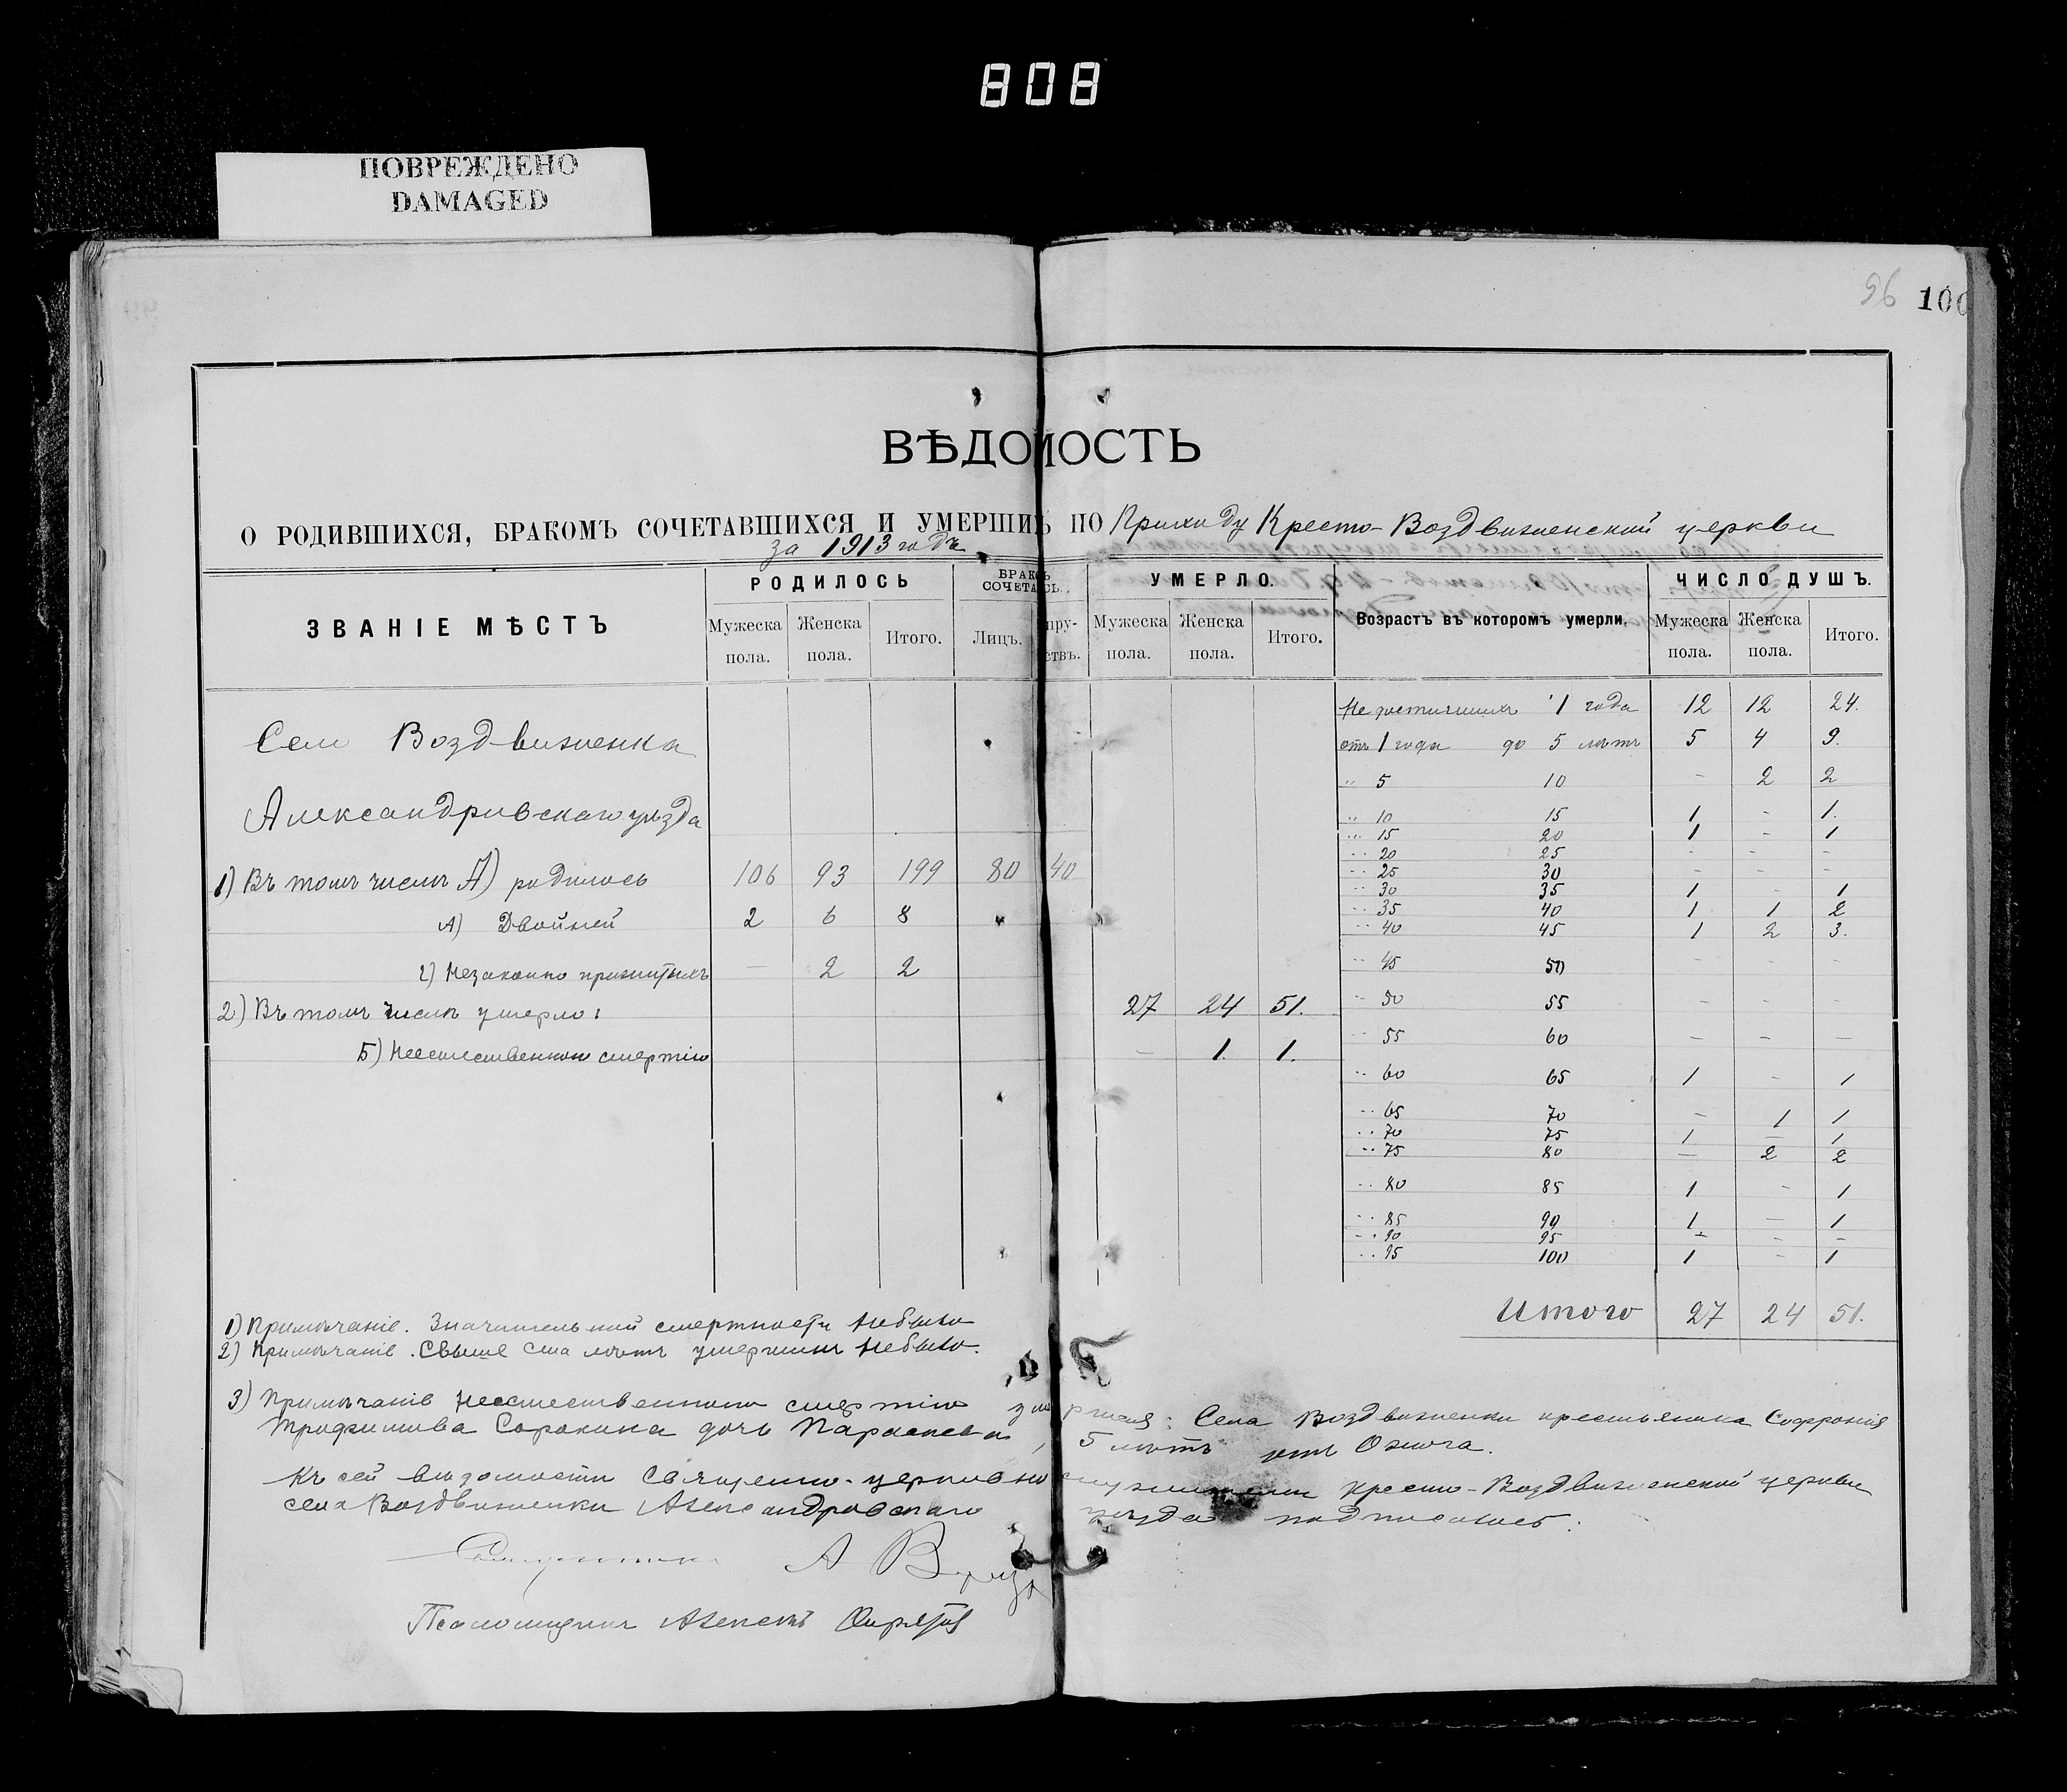 808
ПОВРЕЖДЕНО
DAMAGED
96 100
ВѢДОМОСТЬ
О РОДИВШИХСЯ, БРАКОМЪ СОЧЕТАВШИХСЯ И УМЕРШИХЪ ПО Приходу Кресто-Воздвиженской церкви
за 1913 годъ
ЗВАНІЕ МѢСТЪ
РОДИЛОСЬ
Мужеска пола. Женска пола. Итого.
БРАКЪ СОЧЕТАСЬ.
Лицъ.
УМЕРЛО.
Мужеска пола. Женска пола. Итого.
Возрастъ въ которомъ умерли.
ЧИСЛО ДУШЪ.
Мужеска пола. Женска пола. Итого.
Село Воздвиженка
Александровскаго уѣзда
1) Въ томъ числѣ А) родилось 106 93 199 80 40
А) Двойней 2 6 8
2) Незаконно прижитыхъ — 2 2
2) Въ томъ числѣ умерло: 27 24 51.
Б) Неестественною смертію — 1. 1.
Не достигшихъ 1 года 12 12 24.
отъ 1 года до 5 лѣтъ 5 4 9.
" 5 10 - 2 2
" 10 15 1 - 1.
" 15 20 1 - 1
" 20 25 - - -
" 25 30 - - -
" 30 35 1 - 1
" 35 40 1 1 2
" 40 45 1 2 3.
" 45 50 - - -
" 50 55 - - -
" 55 60 - - -
" 60 65 1 - 1
" 65 70 - 1 1
" 70 75 1 - 1
" 75 80 - 2 2
" 80 85 1 - 1
" 85 90 1 - 1
" 90 95 - - -
" 95 100 1 - 1
Итого 27 24 51.
1) Примѣчаніе. Значительной смертности небыло
2) Примѣчаніе. Свыше ста лѣтъ умершихъ небыло.
3) Примѣчаніе Неестественною смертію умершая: Села Воздвиженки крестьянина Софронія
Трофимова Сорокина дочь Параскева, 5 лѣтъ отъ Ожога.
Къ сей вѣдомости Священно-церковнослужители Кресто-Воздвиженской церкви
села Воздвиженки Александровскаго уѣзда подписались:
Священникъ А
Псаломщикъ Алексѣй